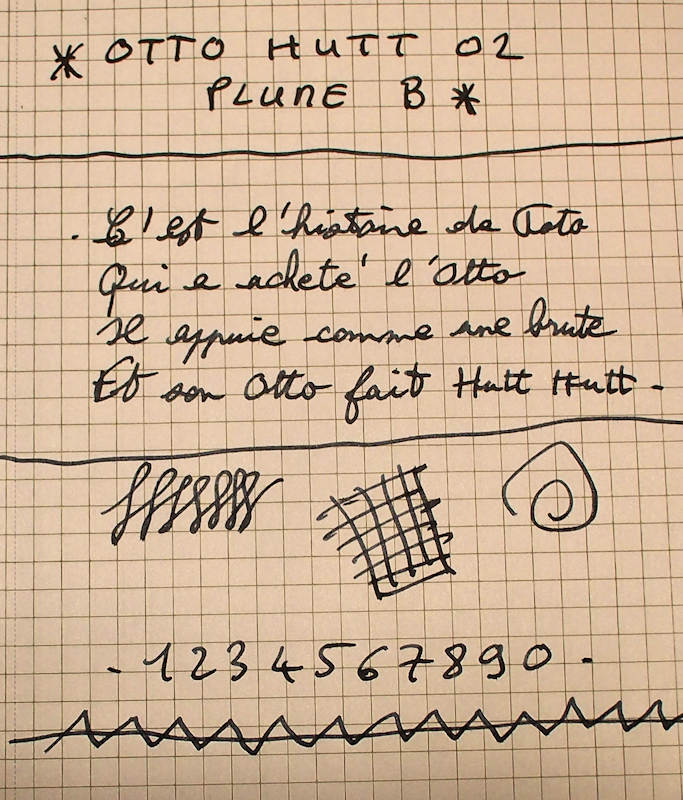 * OTTO HUTT 02
PLUME B *
. C'est l'histoire de Toto
Qui a acheté l'Otto
Il appuie comme une brute
Et son Otto fait Hutt Hutt -
- 1 2 3 4 5 6 7 8 9 0 -